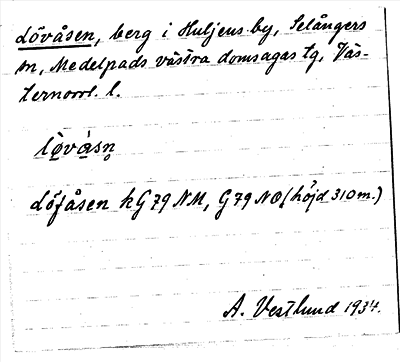 Lövåsen, berg i Huljens by, Selångers
sn, Medelpads västra domsagas tg, Väs-
ternorrl. l.
lö̀vá̀sn̥
Löfåsen kG 79 NM, G 79 NO (höjd 310 m.)
A. Vestlund 1934.